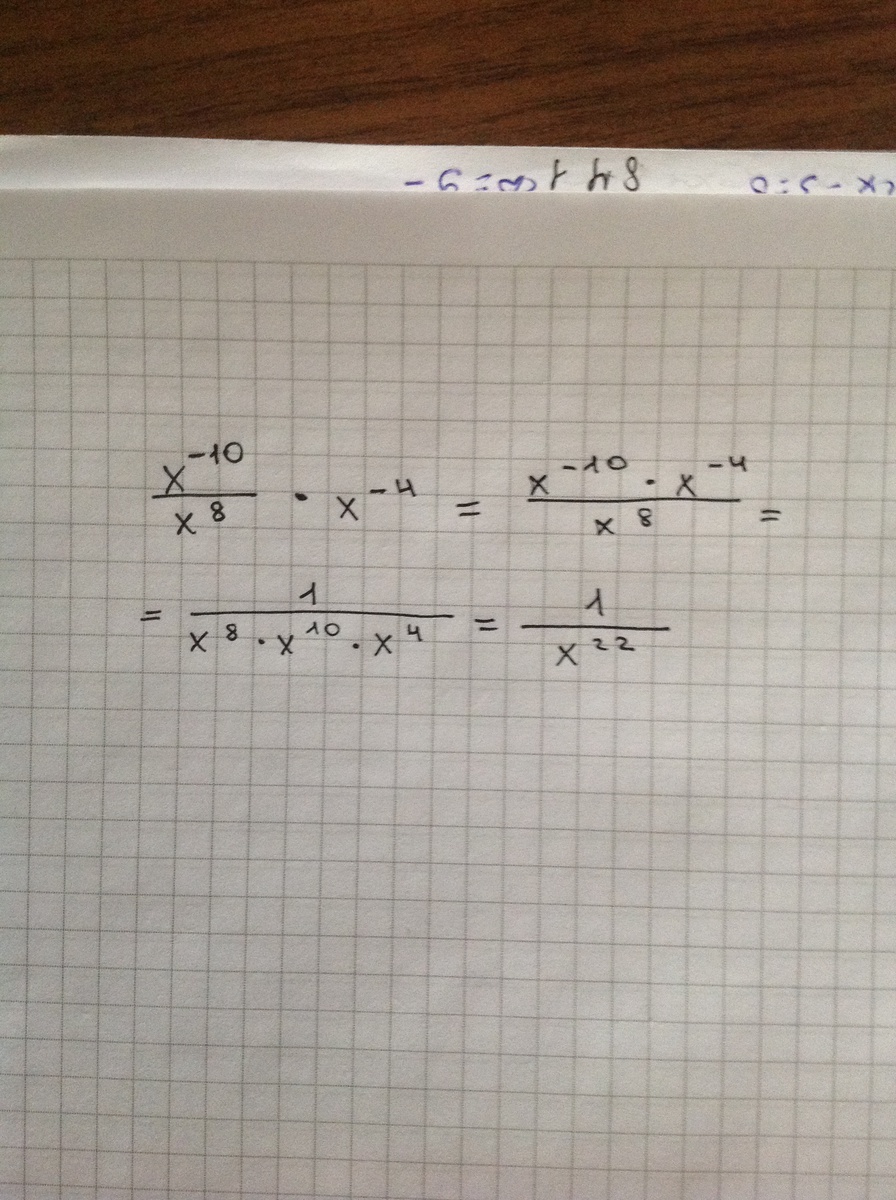 x⁻¹⁰/x⁸ · x⁻⁴ = (x⁻¹⁰ · x⁻⁴)/x⁸ =
= 1/(x⁸ · x¹⁰ · x⁴) = 1/x²²